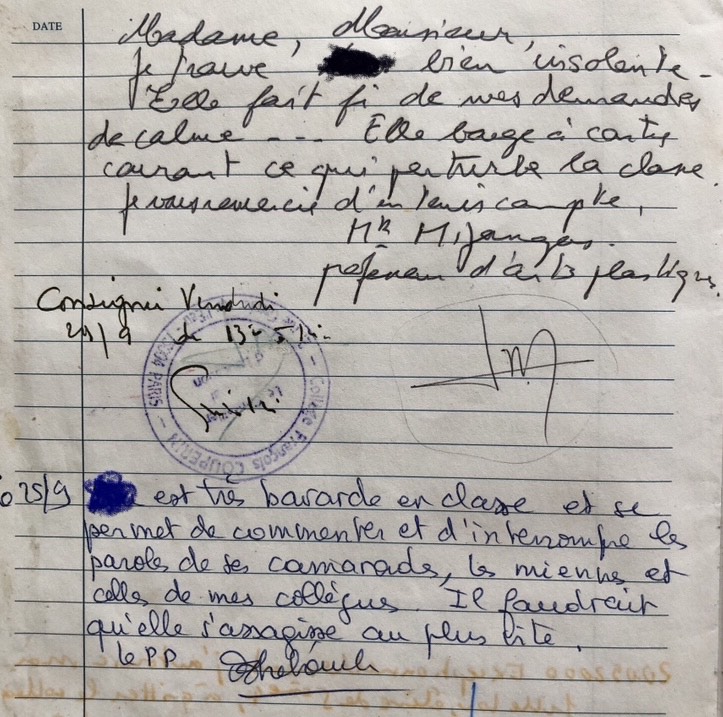 DATE
Madame, Monsieur,
Je trouve bien insolente.
Elle fait fi de mes demandes
de calme --- Elle bouge à contre
courant ce qui perturbe la classe.
Je vous remercie d'en tenir compte,
Mr Mijangos.
professeur d'arts plastiques.
Consignée Vendredi
29/9 de 13h
Collège François COUPERIN
75004 PARIS
25/9 est très bavarde en classe et se
permet de commenter et d'interrompre les
paroles de ses camarades, les miennes et
celles de mes collègues. Il faudrait
qu'elle s'assagisse au plus vite.
Le P.P.